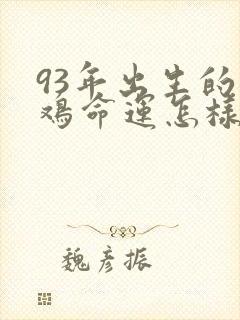 93年出生的
鸡命运怎样
魏彦振